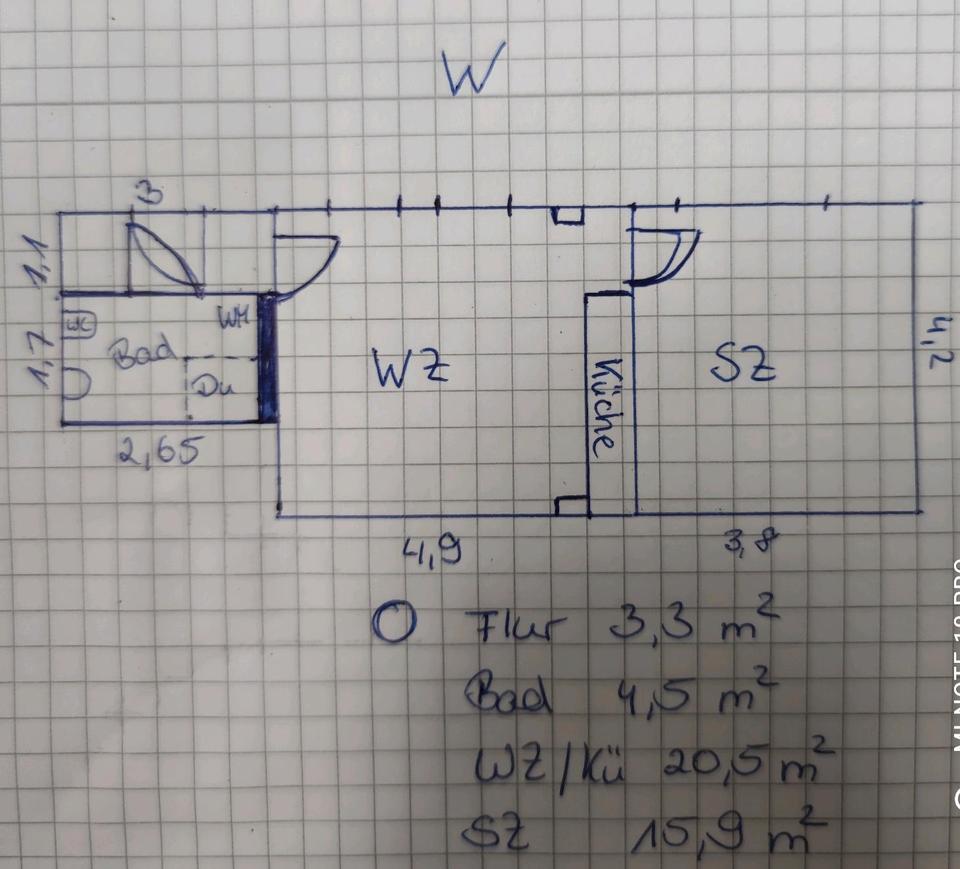 W
3
1,1
1,7
WC
Bad
WM
Du
2,65
WZ
Küche
SZ
4,2
4,9
3,8
O Flur 3,3 m²
Bad 4,5 m²
WZ/Kü 20,5 m²
SZ 15,9 m²